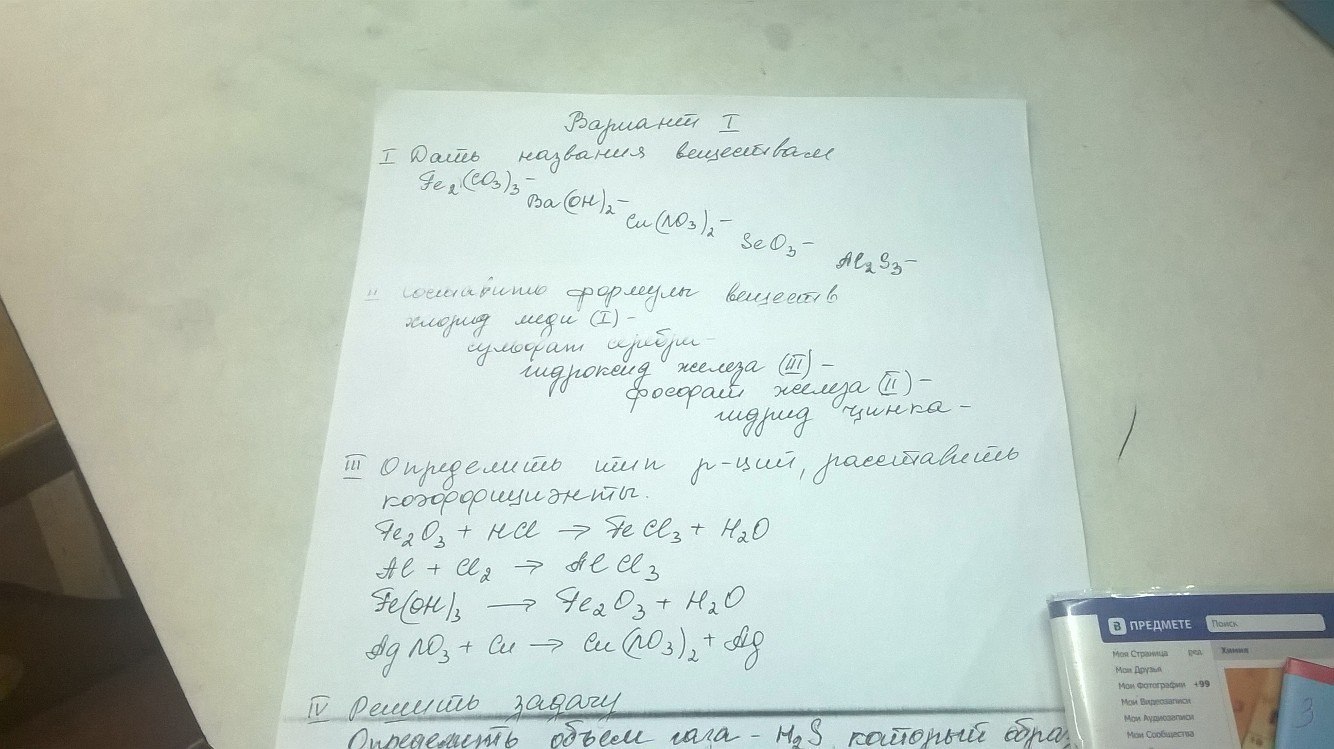 Вариант I
I Дать названия веществам
Fe₂(CO₃)₃ –
Ba(OH)₂ –
Cu(NO₃)₂ –
SeO₃ –
Al₂S₃ –
II Составить формулы веществ
хлорид меди (I) –
сульфат серебра –
гидроксид железа (III) –
фосфат железа (II) –
гидрид цинка –
III Определить тип р-ций, расставить
коэффициэнты.
Fe₂O₃ + HCl → FeCl₃ + H₂O
Al + Cl₂ → AlCl₃
Fe(OH)₃ → Fe₂O₃ + H₂O
AgNO₃ + Cu → Cu(NO₃)₂ + Ag
IV Решить задачу
Определить объем газа – H₂S, который обра
В ПРЕДМЕТЕ Поиск
Моя Страница ред. Химия
Мои Друзья
Мои Фотографии +99
Мои Видеозаписи
Мои Аудиозаписи
Мои Сообщества
3